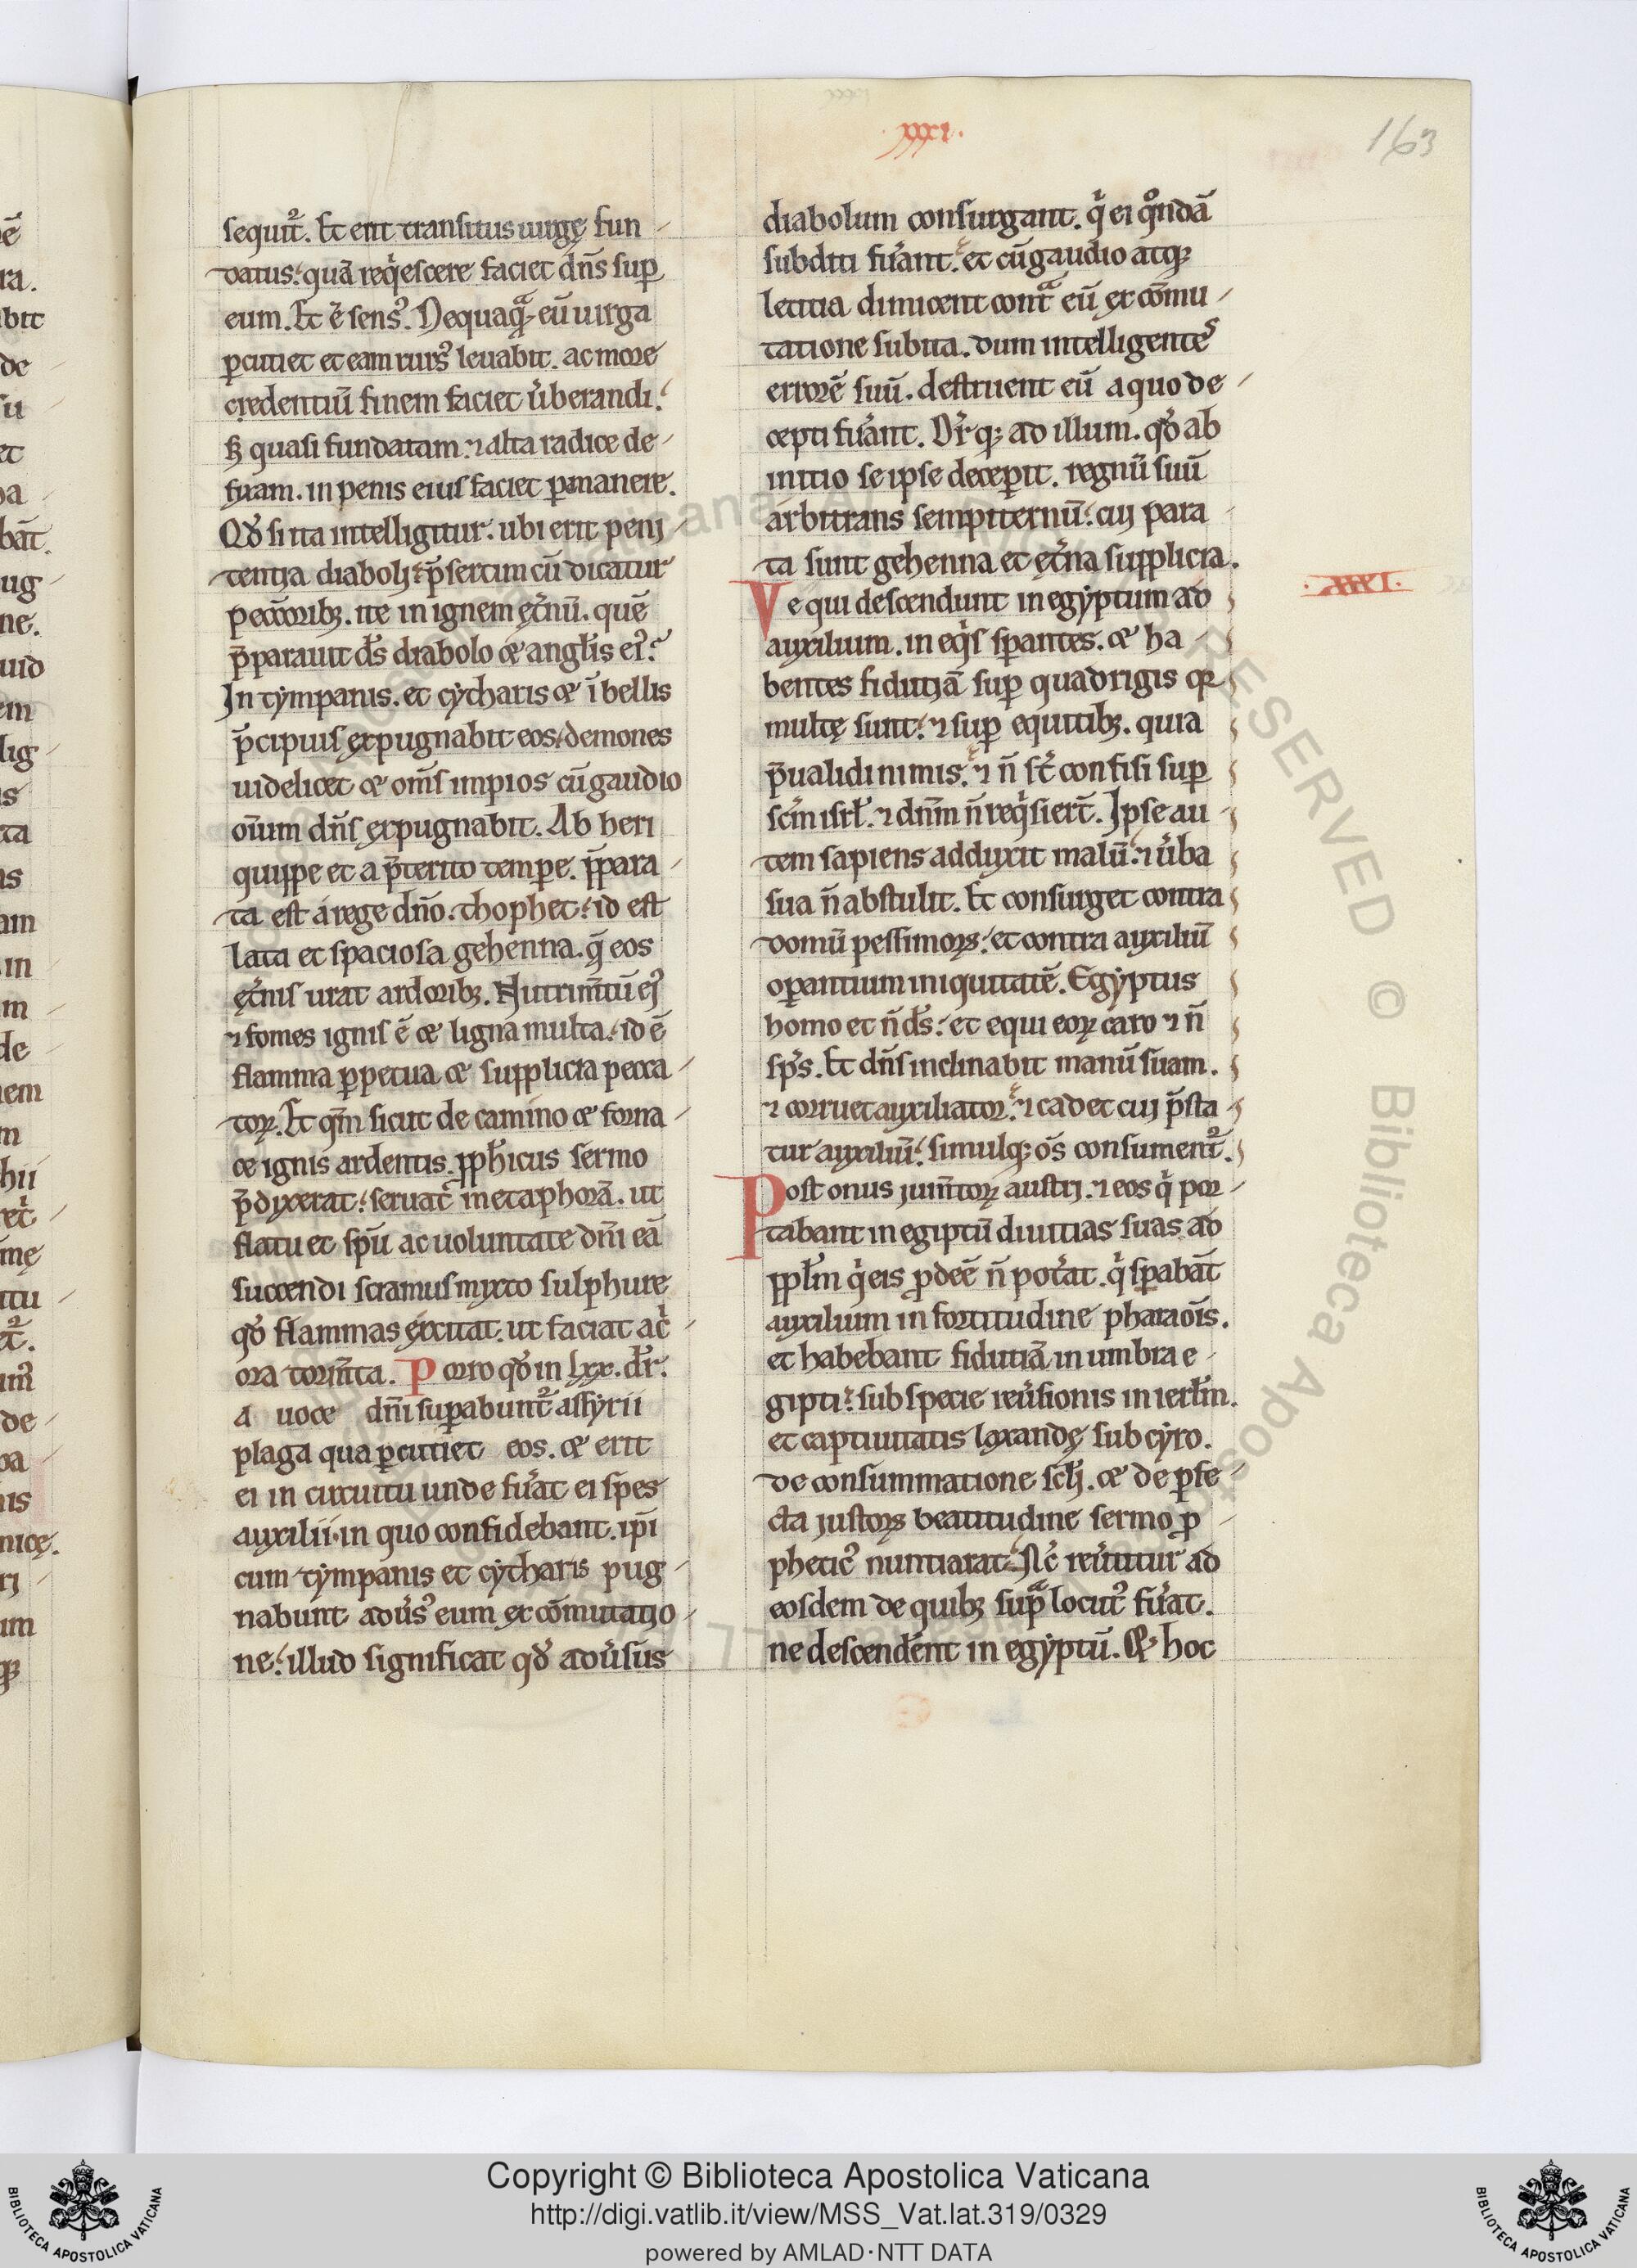 .xxxi.
163
sequit᷑. Et erit transitus uirgę fun
datus: quā req̇escere faciet dn̄s suꝑ
eum. Et ē sensꝰ. Nequaq̃ᷓ eū uirga
ꝑcutiet et eam rursꝰ leuabit. ac more
credentiū finem faciet u̓berandi:
ꝫ quasi fundatam ⁊ alta radice de
fixam. in penis eius faciet ꝑmanere.
Qd̓ si ita intelligitur. ubi erit peni
tentia diaboli: p̄sertim cū dicatur
peccoribꝫ. ite in ignem ęt̓nū. quē
p̄parauit ds̄ diabolo & anglis̄ eiꝰ?
In tympanis. et cytharis & ī bellis
p̄cipuis expugnabit eos. demones
uidelicet & om̄s impios cū gaudio
oīum dn̄s expugnabit. Ab heri
quippe et a p̄terito tempe̱. p̄para
ta est a rege dn̄o. thophet: id est
lata et spaciosa gehenna. q̄ eos
ęt̓nis urat ardoribꝫ. Nutrim̄tū eiꝰ
⁊ fomes ignis ē & ligna multa. id ē
flamma ꝑpetua & supplicia pecca
toꝝ. Et qm̄ sicut de camino & forna
ce ignis ardentis. ꝓph̄icus sermo
p̄dixerat: seruat᷑ metaphorā. ut
flatu et sp̄u ac uoluntate dn̄i eā
succendi sciamus mixto sulphure
qd̓ flammas excitat. ut faciat ac̓
ora torm̄ta. Porro qd̓ in lxx. dr̄.
A uoce dn̄i suꝑabunt᷑ assyrii
plaga qua ꝑcutiet eos. & erit
ei in circuitu unde fu̓at ei spes
auxilii. in quo confidebant. ip̄i
cum tympanis et cytharis pug
nabunt adu̓sꝰ eum ex cōmutatio
ne: illud significat qd̓ adu̓sus
diabolum consurgant. q̇ ei qͦndā
subditi fu̓ant: et cū gaudio atqꝫ
letitia dimicent contᷓ eū ex cōmu
tatione subita. dum intelligentes
errorē suū. destruent eū a quo de
cepti fu̓ant. Dr̄qꝫ ad illum. qd̓ ab
initio se ipse deceꝑit. regnū suū
arbitrans sempiternū: cui para
ta sunt gehenna et ęt̓na supplicia.
Ve qui descendunt in egyptum ad
.XXXI.
auxilium. in eq̇s sꝑantes. & ha
bentes fiduciā suꝑ quadrigis qꝛ
multę sunt: ⁊ suꝑ equitibꝫ. quia
p̄ualidi nimis: ⁊ n̄ st̄ confisi suꝑ
scm̄ isrł. ⁊ dnm̄ n̄ req̇siert̄. Ipse au
tem sapiens adduxit malū: ⁊ u̓ba
sua n̄ abstulit. Et consurget contra
domū pessimoꝝ: et contra auxiliū
oꝑantium iniquitatē. Egyptus
homo et n̄ ds̄: et equi eoꝝ caro ⁊ n̄
sp̄s. Et dn̄s inclinabit manū suam.
⁊ corruet auxiliator: ⁊ cadet cui p̄sta
tur auxiliū: simulqꝫ os̄ consument᷑.
Post onus ium̄toꝝ austri. ⁊ eos q̇ por
tabant in egiptū diuitias suas ad
ppłm q̇ eis ꝓdeē n̄ pot̓at. q̇ sꝑabāt
auxilium in fortitudine pharaoīs.
et habebant fiduciā in umbra e
gipti: sub specie reu̓sionis in ierłm.
et captiuitatis laxandę sub cyro.
de consummatione scłi. & de ꝑfe
cta iustoꝝ beatitudine sermo ꝓ
pheticꝰ nuntiarat: Nc̄ reu̓titur ad
eosdem de quibꝫ supᷓ locutꝰ fu̓at.
ne descenderent in egyptū. Et hoc
Copyright © Biblioteca Apostolica Vaticana
http://digi.vatlib.it/view/MSS_Vat.lat.319/0329
powered by AMLAD·NTT DATA